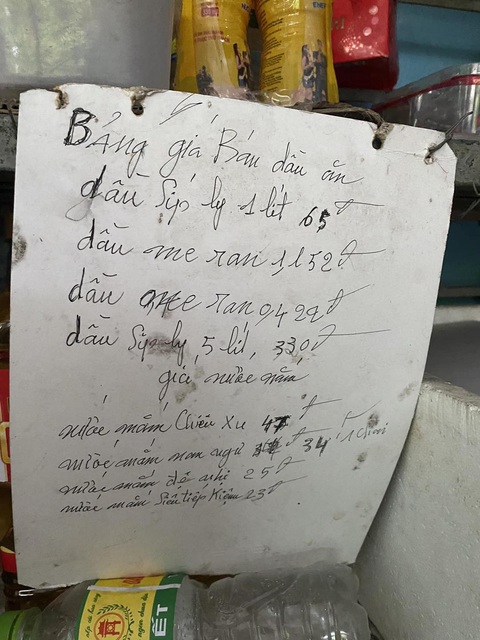 Bảng giá Bán dầu ăn
dầu Siply 1 lít 65đ
dầu me ran 1,l 52đ
dầu me ran 0,4 29đ
dầu Siply, 5 lít, 330đ
giá nước mắm
nước mắm Chiếu Xu 47đ
nước mắm nam ngư 34đ 1 chai
nước mắm đệ nhị 25đ
nước mắm Siêu tiếp Kiệm 23đ
ẾT